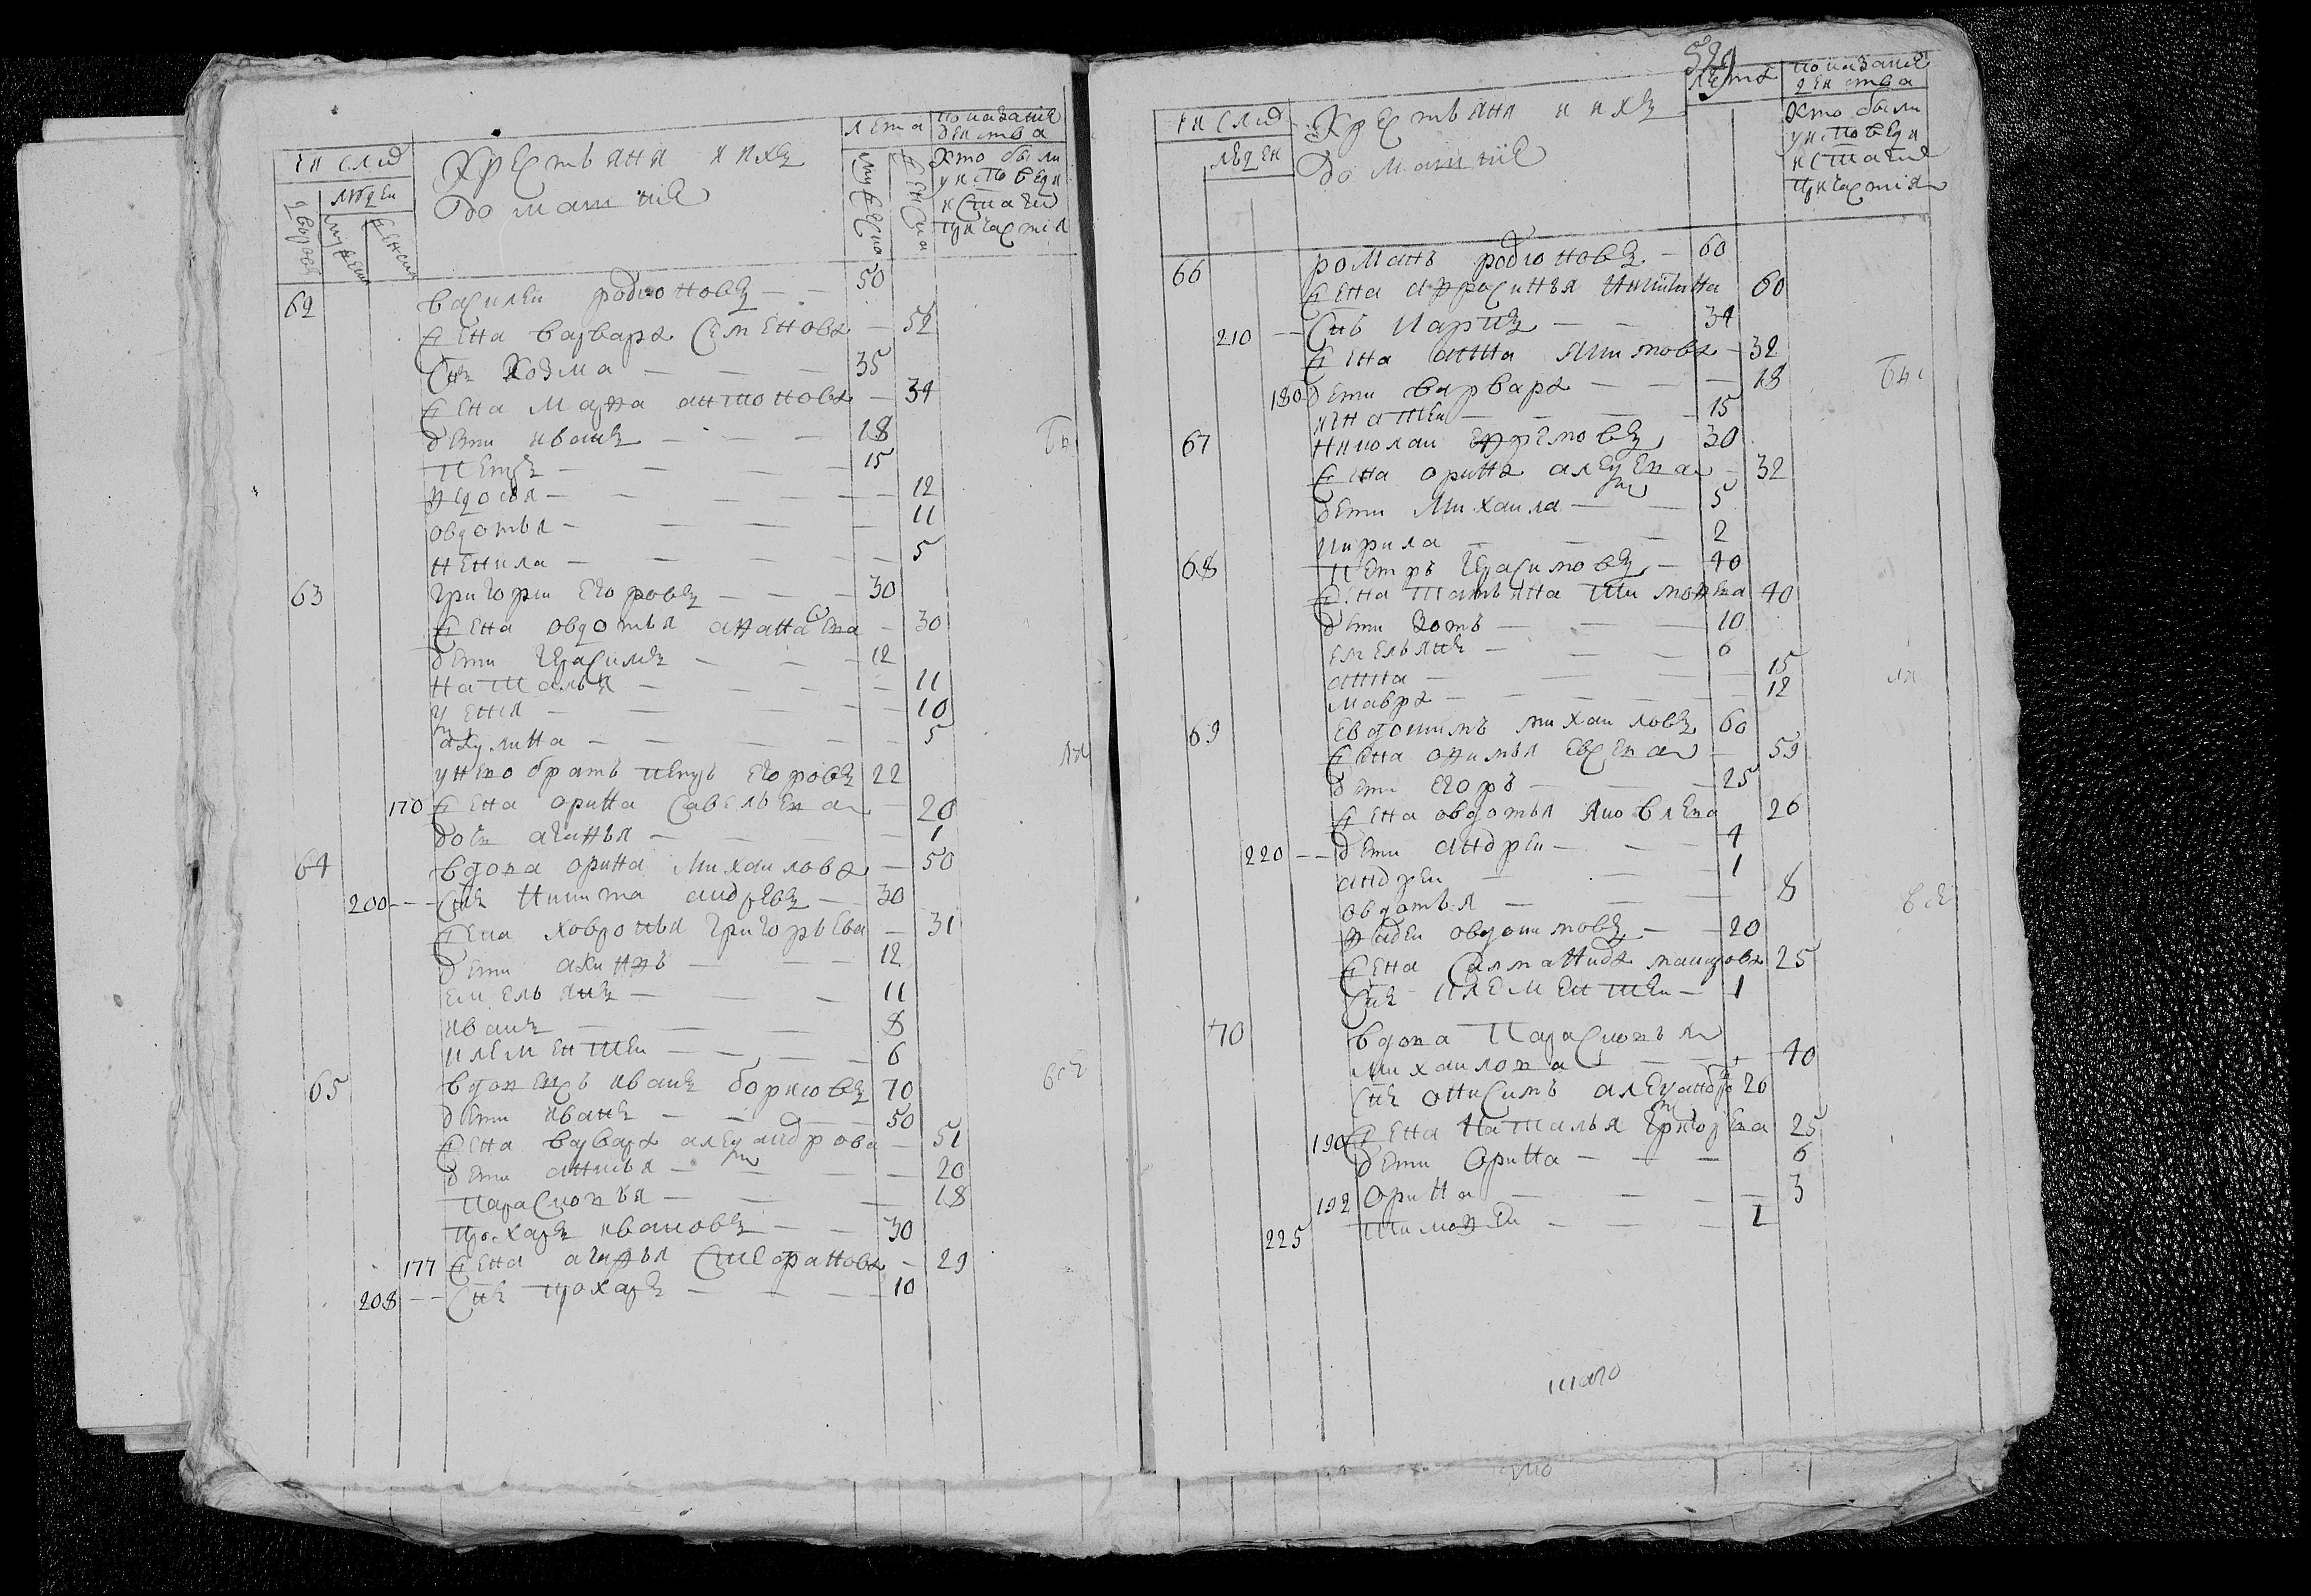 число
людей
дворовъ
мужеска
женска
Хрестьяня и ихъ
домашние
лета
мужеска
женска
показание
деиства
Хто были
у исповеди
и стаго
причастия
62 василеи родионовъ 50
жена варвара семенова 52
снъ Козма 35
жена Марфа антонова 34
дети иванъ 18
петръ 15
федосья 12
овдотья 11
ненила 5
63 григореи егоровъ 30
жена овдотья афанасева 30
дети герасимъ 12
наталья 11
ксенья 10
акулина 5
у него братъ петръ егоровъ 22
170 жена орина савельева 20
дочь агафья 1
64 вдова орина михаилова 50
200 снъ никита андревъ 30
жена ховронья григорьева 31
дети акинфъ 12
емельянъ 11
иванъ 8
клементеи 6
65 вдовецъ иванъ борисовъ 70
дети иванъ 50
жена варвара александрова 51
дети анисья 20
парасковья 18
прохаръ ивановъ 30
177 жена агафья 29
208 снъ прохаръ 10
бы
ли
все
529
число
людеи
Хрестьяня и ихъ
домашние
лета
показание
деиства
Хто были
у исповеди
и стаго
причастия
66 романъ родионовъ 60
жена афросинья никитина 60
210 снъ карпъ 34
жена анна 32
180 дети варвара 18
игнатеи 15
67 николаи ефремовъ 30
жена орина алексева 32
дети михаила 5
кирила 2
68 петръ герасимовъ 40
жена татьяна тимофева 40
дети зотъ 10
емельянъ 6
анна 15
мавра 12
69 евдокимъ михаиловъ 60
жена офимья евсева 59
дети егоръ 25
жена овдотья яковлева 26
220 дети андреи 4
андреи 1
овдотья 8
фадеи овдокимовъ 20
жена саламанида 25
снъ клементеи 1
70 вдова парасковья
михаилова 40
снъ онисимъ александръ 26
190 жена наталья григорева 25
дети орина 6
192 орина 3
225 тимофеи 1
бы
ли
все